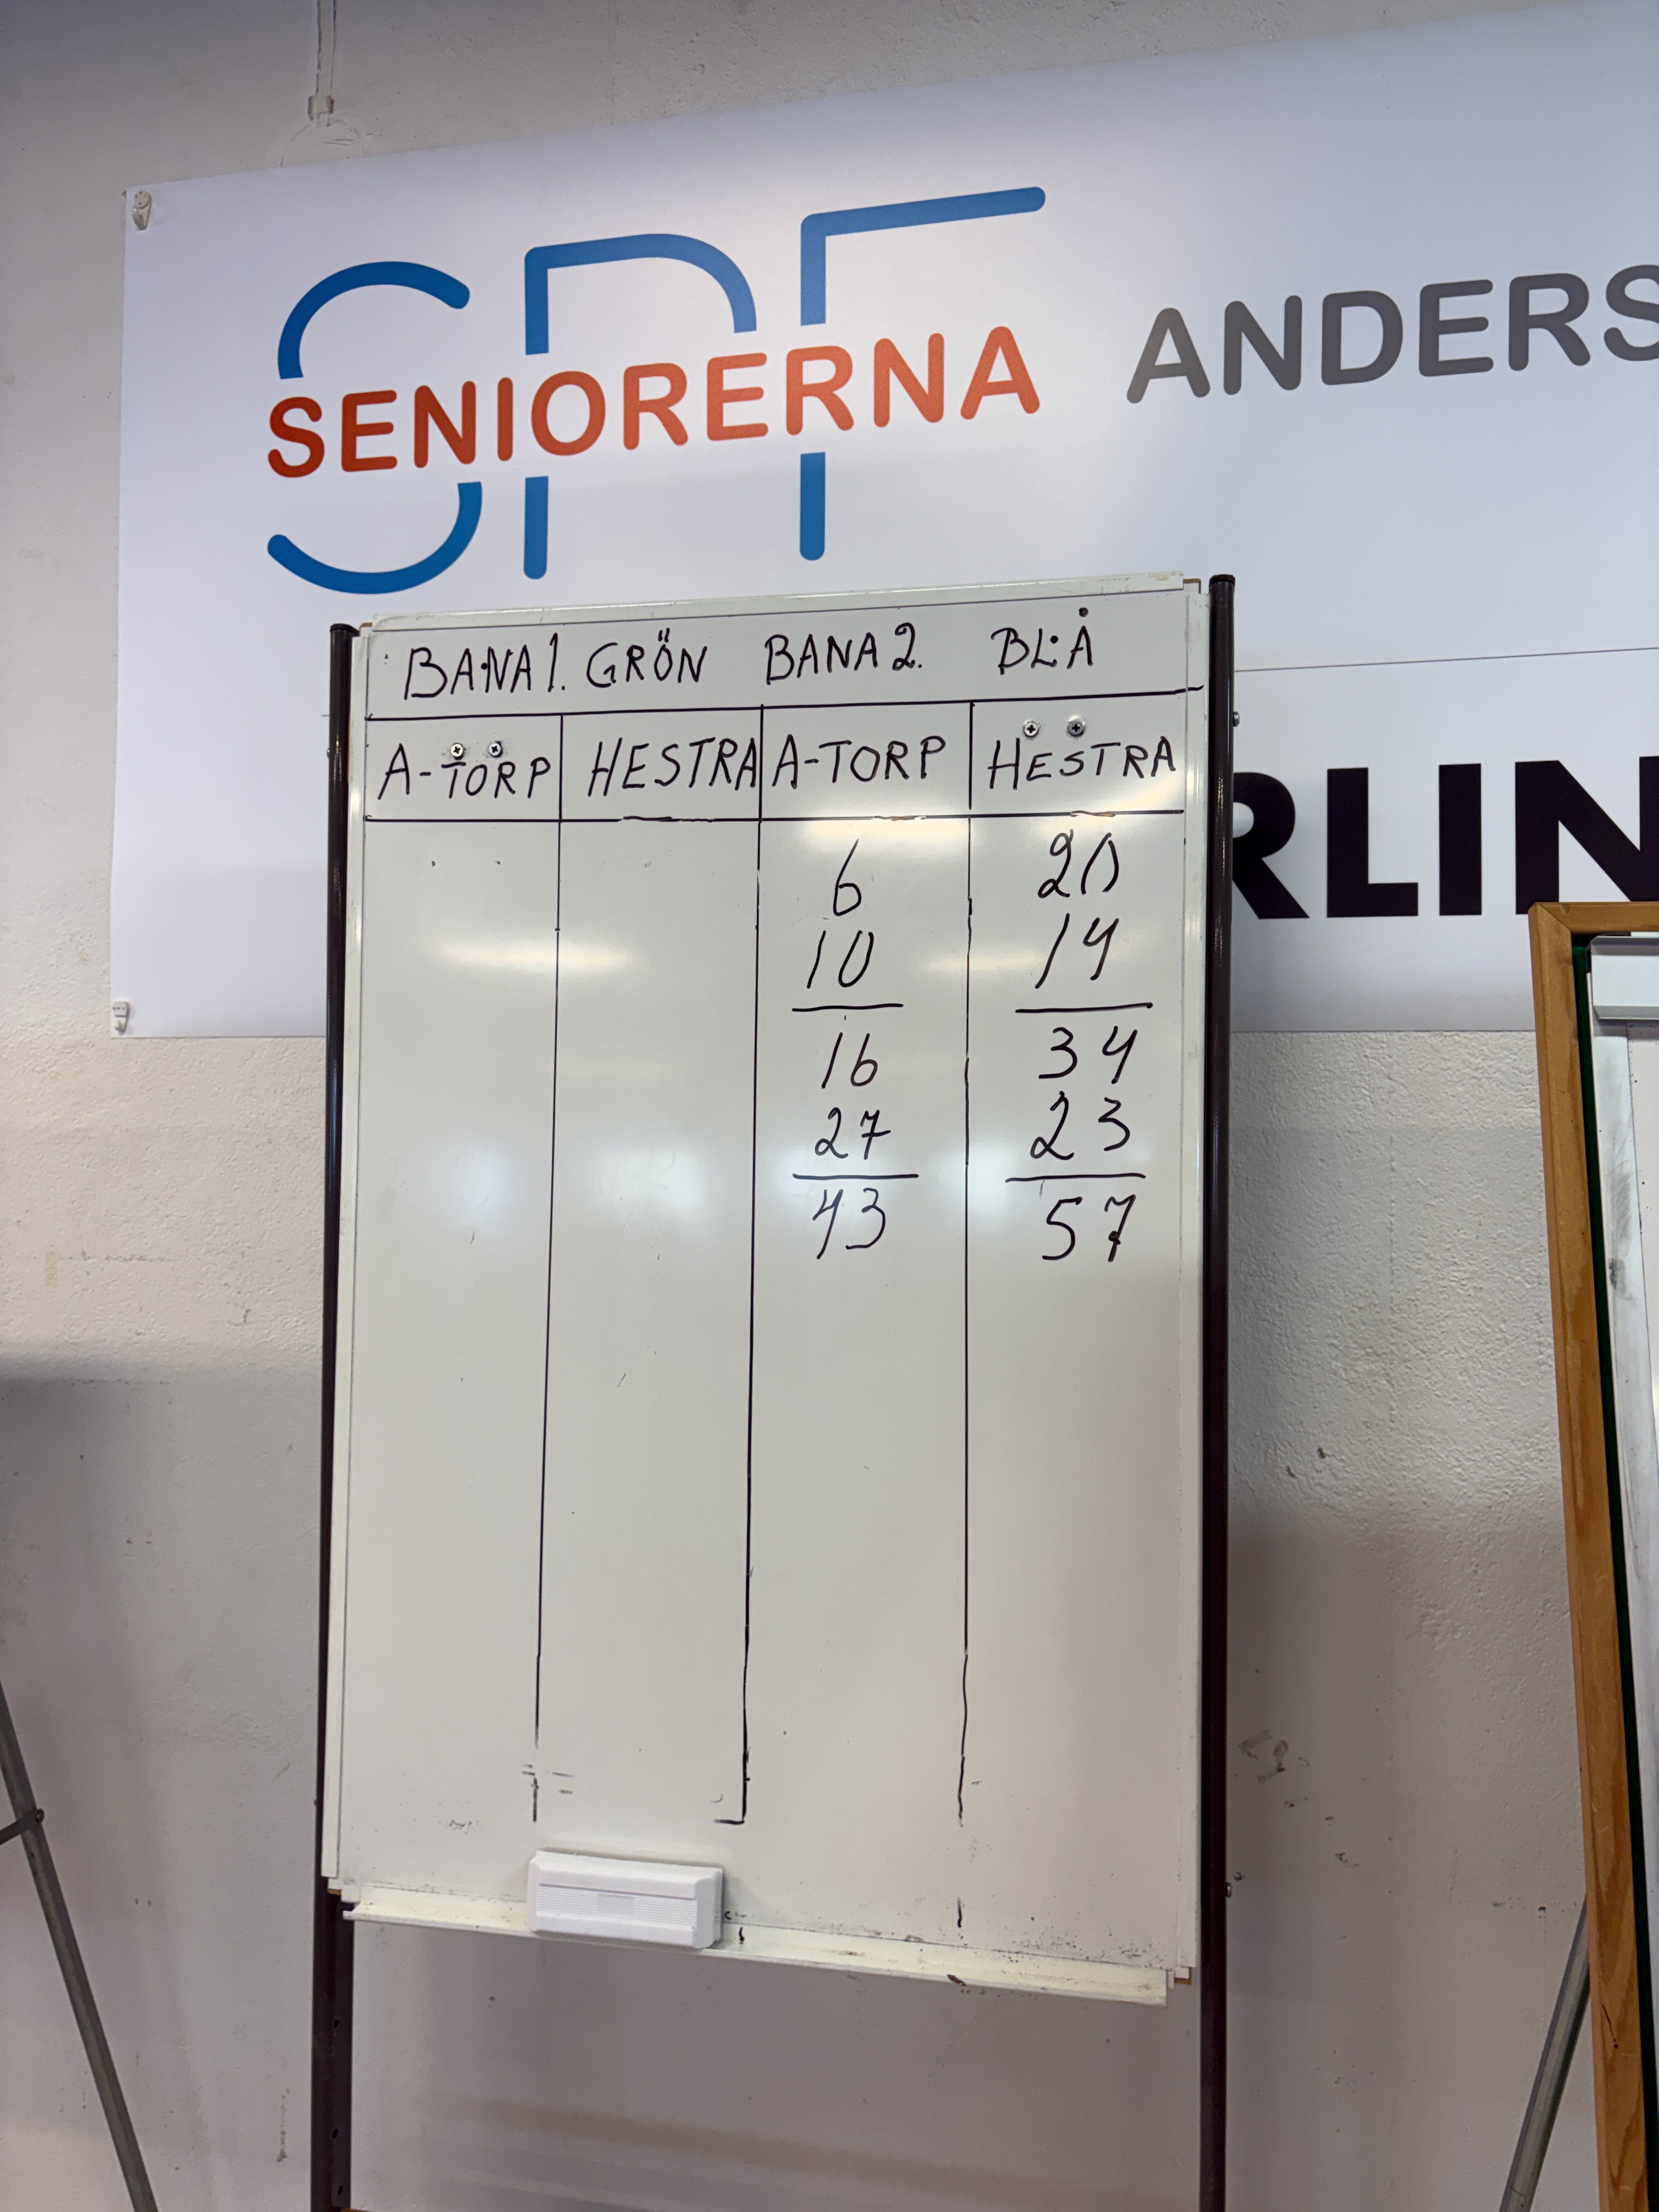 SPF
SENIORERNA ANDERS
RLIN
BANA 1. GRÖN BANA 2. BLÅ
A-TORP HESTRA A-TORP HESTRA
6 20
10 14
16 34
27 23
43 57